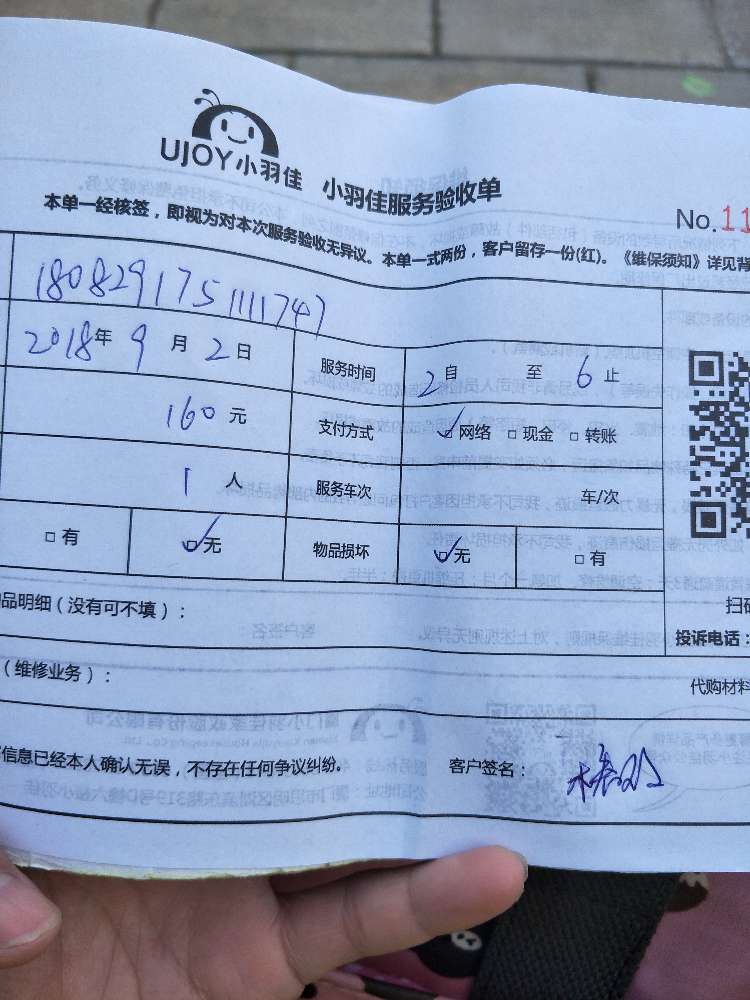 UJOY小羽佳 小羽佳服务验收单
No.11
本单一经核签，即视为对本次服务验收无异议。本单一式两份，客户留存一份(红)。《维保须知》详见背
180829175111747
2018年9月2日 服务时间 2自 至 6止
160元 支付方式 ☑网络 □现金 □转账
1人 服务车次 车/次
□有 ☑无 物品损坏 ☑无 □有
品明细（没有可不填）：
扫
投诉电话：
（维修业务）：
代购材料
信息已经本人确认无误，不存在任何争议纠纷。 客户签名：